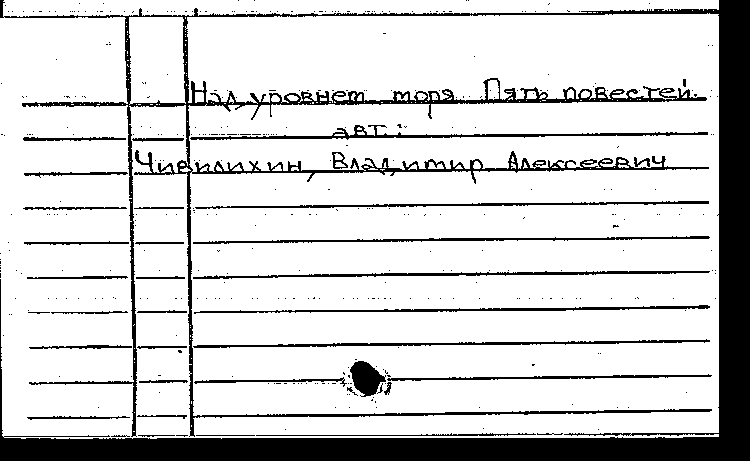 Над уровнем моря. Пять повестей.
авт.:
Чивилихин, Владимир Алексеевич